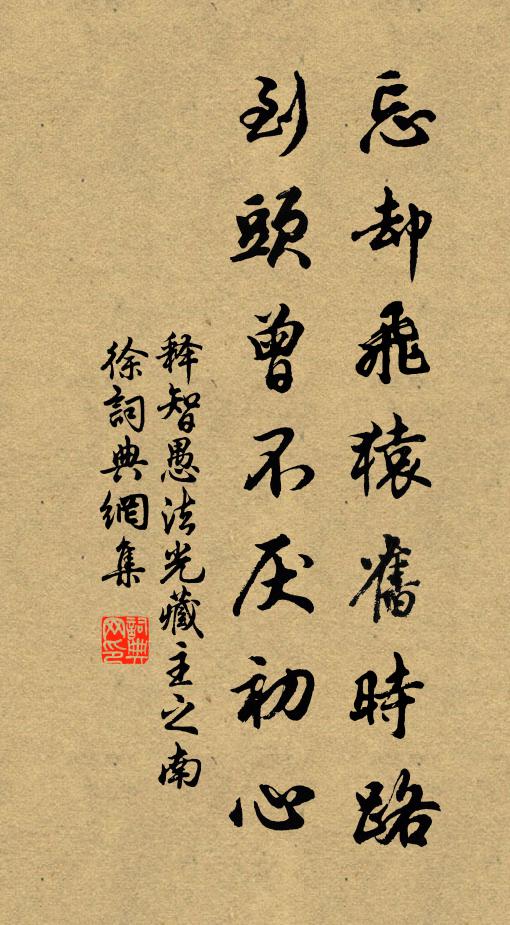 忘却飛猿舊時路
到頭曾不厌初心
释智愚法光藏主之南
徐詞典網集
詞典网印